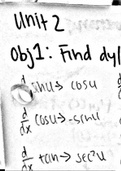 Unit 2
Obj 1: Find dy/
sinu → cosu
d/dx cosu → -sinu
d/dx tan → sec²u